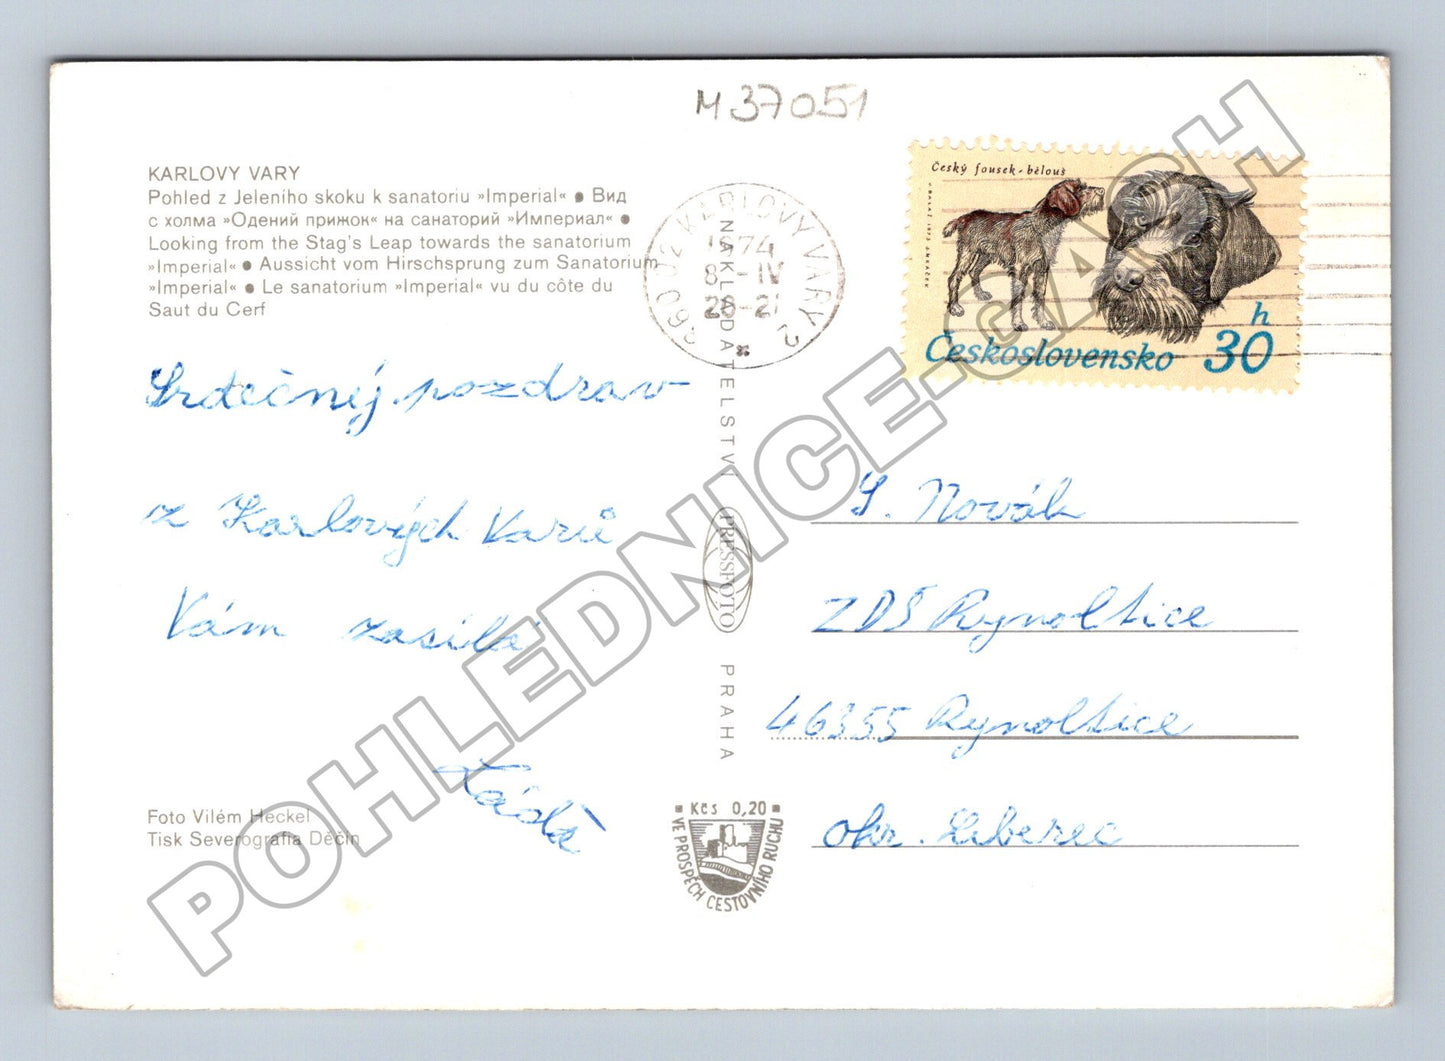 M 37051
KARLOVY VARY
Pohled z Jeleního skoku k sanatoriu »Imperial« ● Вид
с холма »Одений прижок« на санаторий »Империал« ●
Looking from the Stag's Leap towards the sanatorium
»Imperial« ● Aussicht vom Hirschsprung zum Sanatorium
»Imperial« ● Le sanatorium »Imperial« vu du côte du
Saut du Cerf
360 02 KARLOVY VARY 2
1974
8.-IV
Český fousek - bělouš
Československo 30 h
Srdečný pozdrav
z Karlových Varů
Vám zasílá
Láďa
NAKLADATELSTVÍ
PRESSFOTO
PRAHA
Novák
ZDŠ Rynoltice
46355 Rynoltice
okr. Liberec
Foto Vilém Heckel
Tisk Severografia Děčín
Kčs 0,20
VE PROSPĚCH CESTOVNÍHO RUCHU
POHLEDNICE-CACH